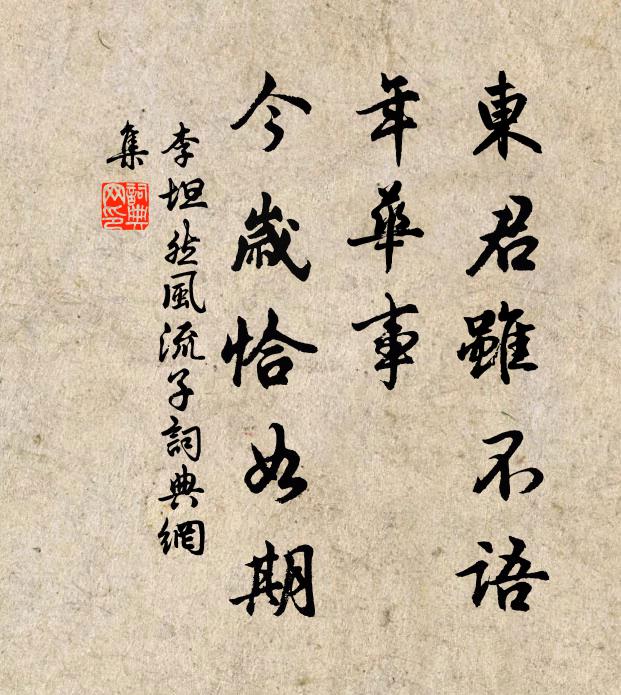 東君雖不語
年華事
今歲恰如期
李坦然風流子詞典網
集
詞典
网印